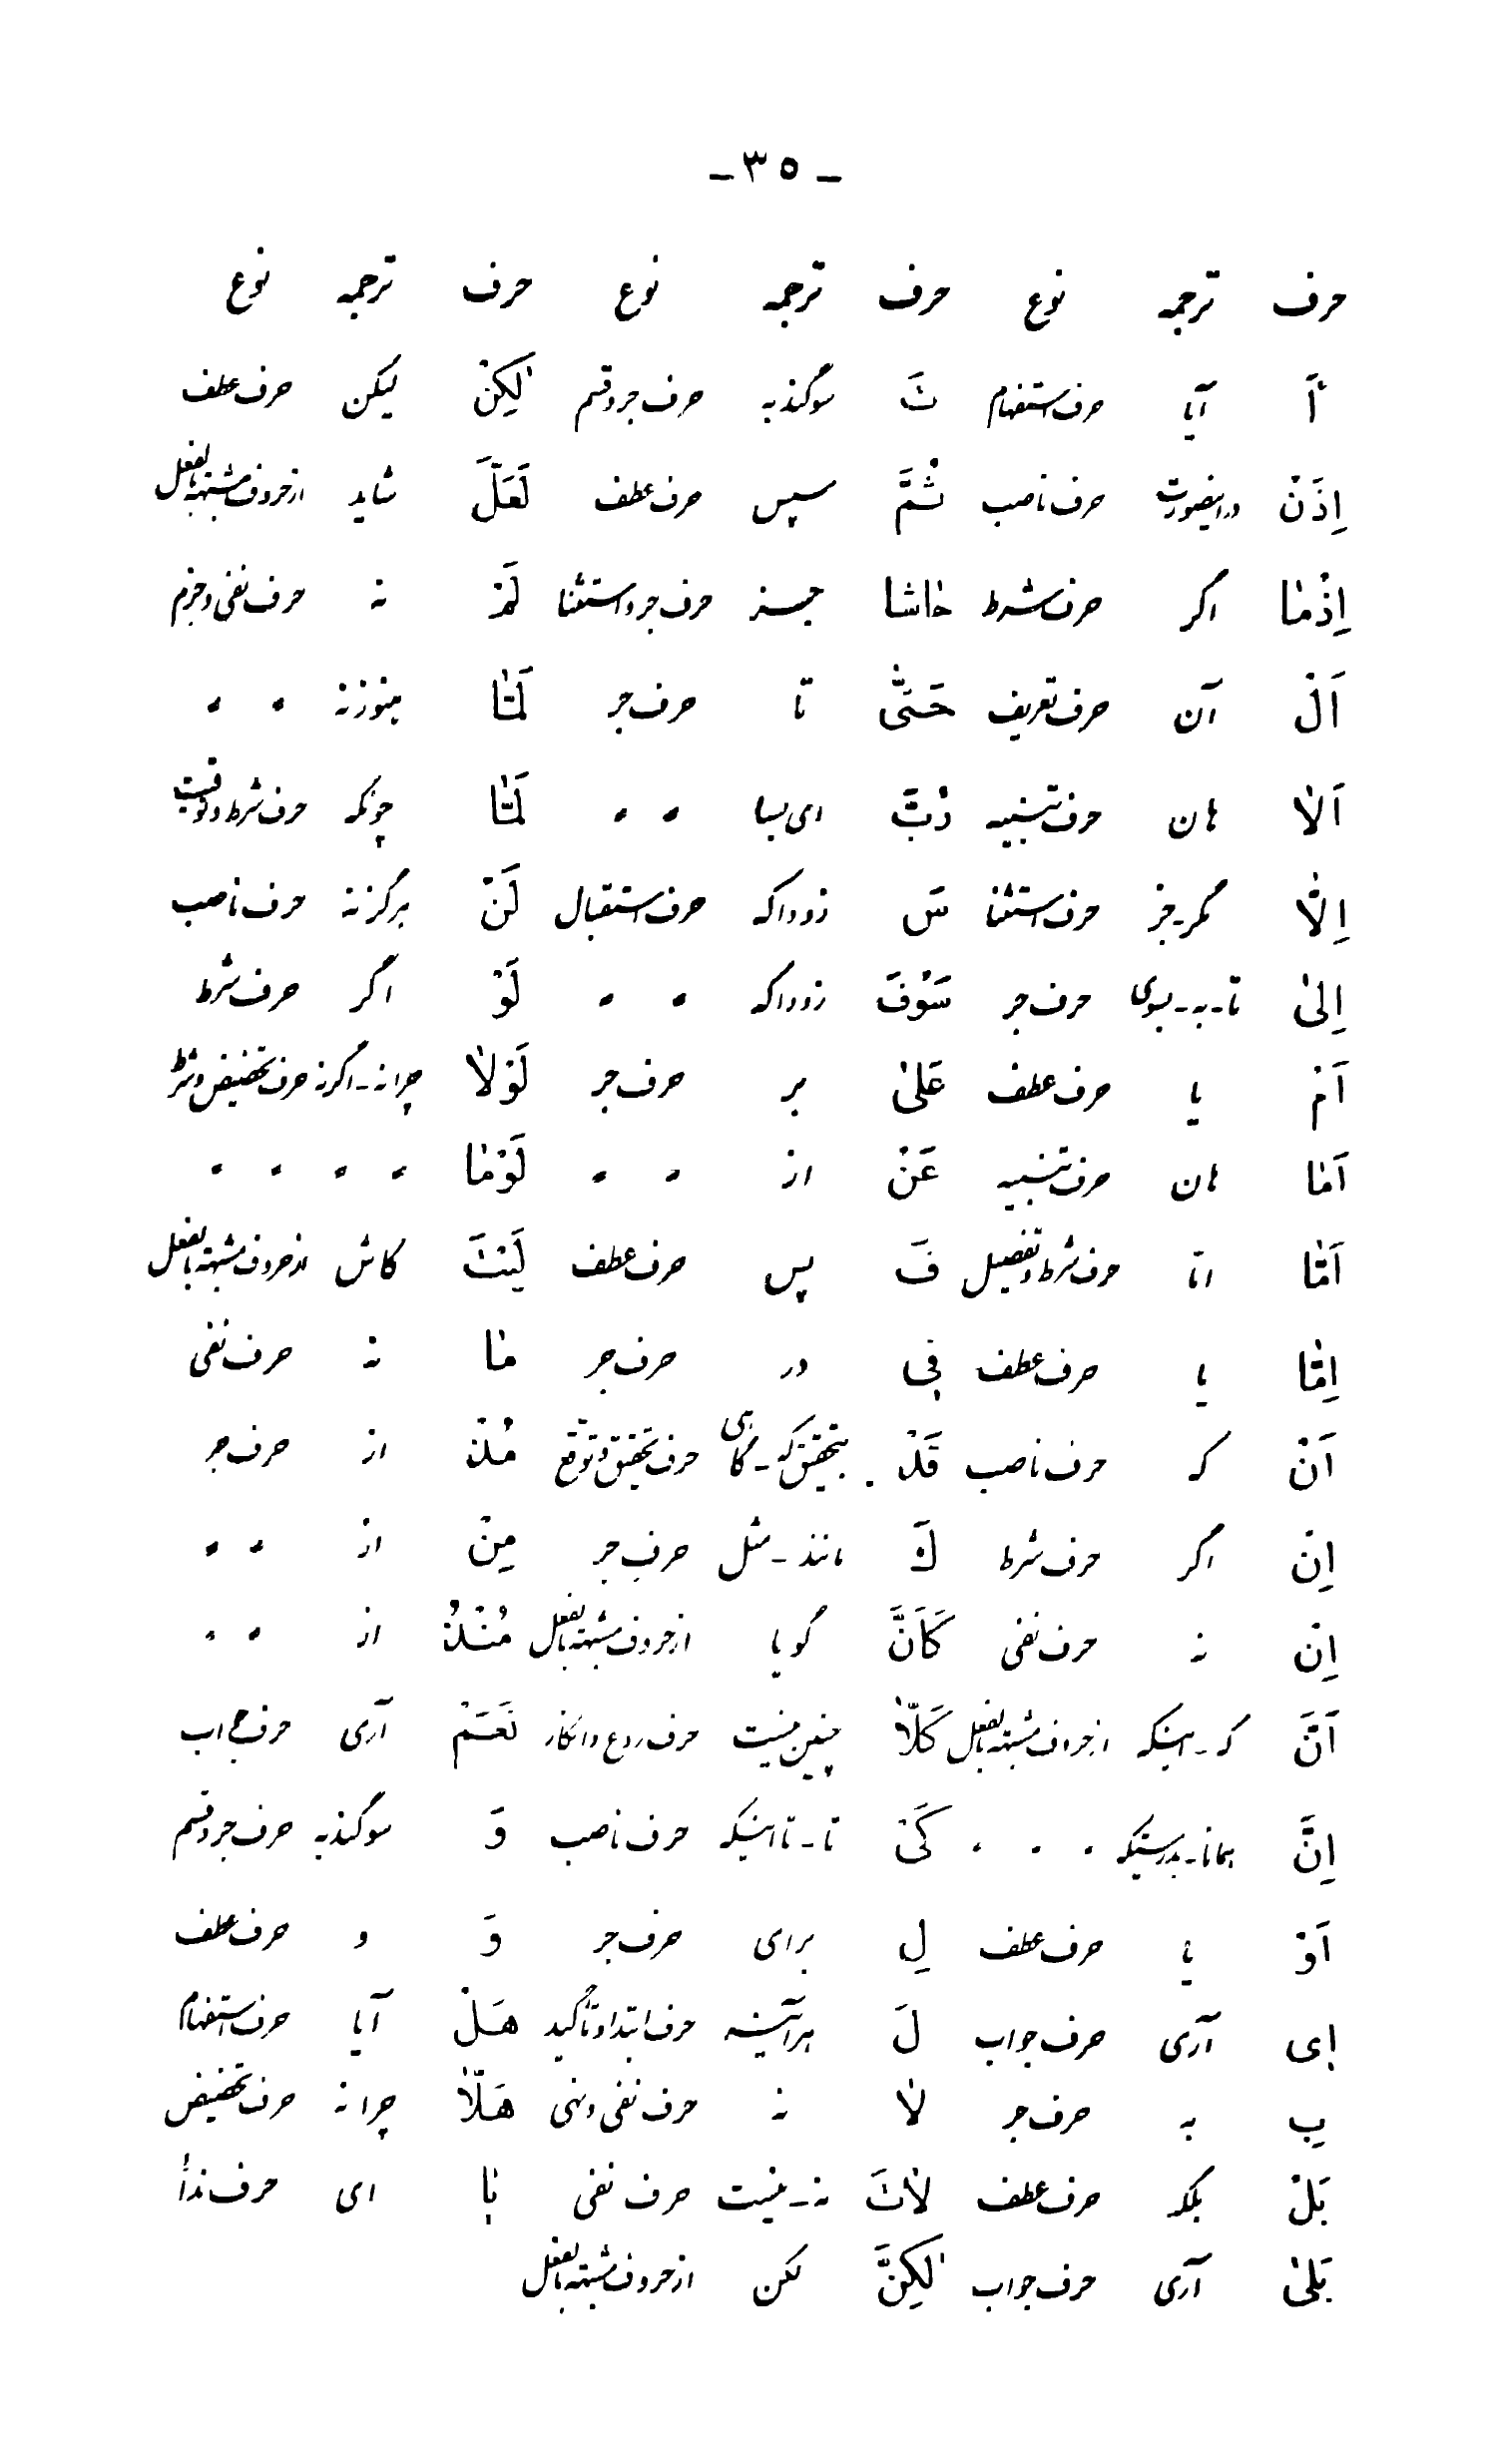 - ٣٥ -
حرف ترجمه نوع حرف ترجمه نوع حرف ترجمه نوع
أَ آیا حرف استفهام تَ سوگند به حرف جر و قسم لٰکِنْ لیکن حرف عطف
اِذَنْ دراینصورت حرف ناصب ثُمَّ سپس حرف عطف لَعَلَّ شاید از حروف مشبهة بالفعل
اِذْمٰا اگر حرف شرط حٰاشا جز حرف جر و استثنا لَمْ نه حرف نفی و جزم
اَلْ آن حرف تعریف حَتّٰی تا حرف جر لَمّٰا هنوز نه ٠ ٠
اَلاٰ هان حرف تنبیه رُبَّ ای بسا ٠ ٠ لَمّٰا چونکه حرف شرط و توقیت
اِلاّٰ مگر-جز حرف استثنا سَ زود اکه حرف استقبال لَنْ هرگز نه حرف ناصب
اِلیٰ تا-به-بسوی حرف جر سَوْفَ زود اکه ٠ ٠ لَوْ اگر حرف شرط
اَمْ یا حرف عطف عَلیٰ بر حرف جر لَوْلاٰ چرا نه-اگرنه حرف تحضیض و شرط
اَمٰا هان حرف تنبیه عَنْ از ٠ ٠ لَوْمٰا ٠ ٠ ٠ ٠
اَمّٰا امّا حرف شرط و تفصیل فَ پس حرف عطف لَیْتَ کاش از حروف مشبهة بالفعل
اِمّٰا یا حرف عطف فِی در حرف جر مٰا نه حرف نفی
اَنْ که حرف ناصب قَدْ بتحقیق که-گاهی حرف تحقیق و توقع مُذْ از حرف جر
اِنْ اگر حرف شرط کَ مانند-مثل حرف جر مِنْ از ٠ ٠
اِنْ نه حرف نفی کَاَنَّ گویا از حروف مشبهة بالفعل مُنْذُ از ٠ ٠
اَنَّ که-اینکه از حروف مشبهة بالفعل کَلاّٰ چنین نیست حرف ردع و انکار نَعَمْ آری حرف جواب
اِنَّ همانا-بدرستیکه ٠ ٠ ٠ کَیْ تا-تا اینکه حرف ناصب وَ سوگند به حرف جر و قسم
اَوْ یا حرف عطف لِ برای حرف جر وَ و حرف عطف
اِی آری حرف جواب لَ هرآینه حرف ابتدا و تأکید هَلْ آیا حرف استفهام
بِ به حرف جر لاٰ نه حرف نفی و نهی هَلاّٰ چرا نه حرف تحضیض
بَلْ بلکه حرف عطف لاٰتَ نه-نیست حرف نفی یٰا ای حرف ندأ
بَلیٰ آری حرف جواب لٰکِنَّ لکن از حروف مشبهة بالفعل